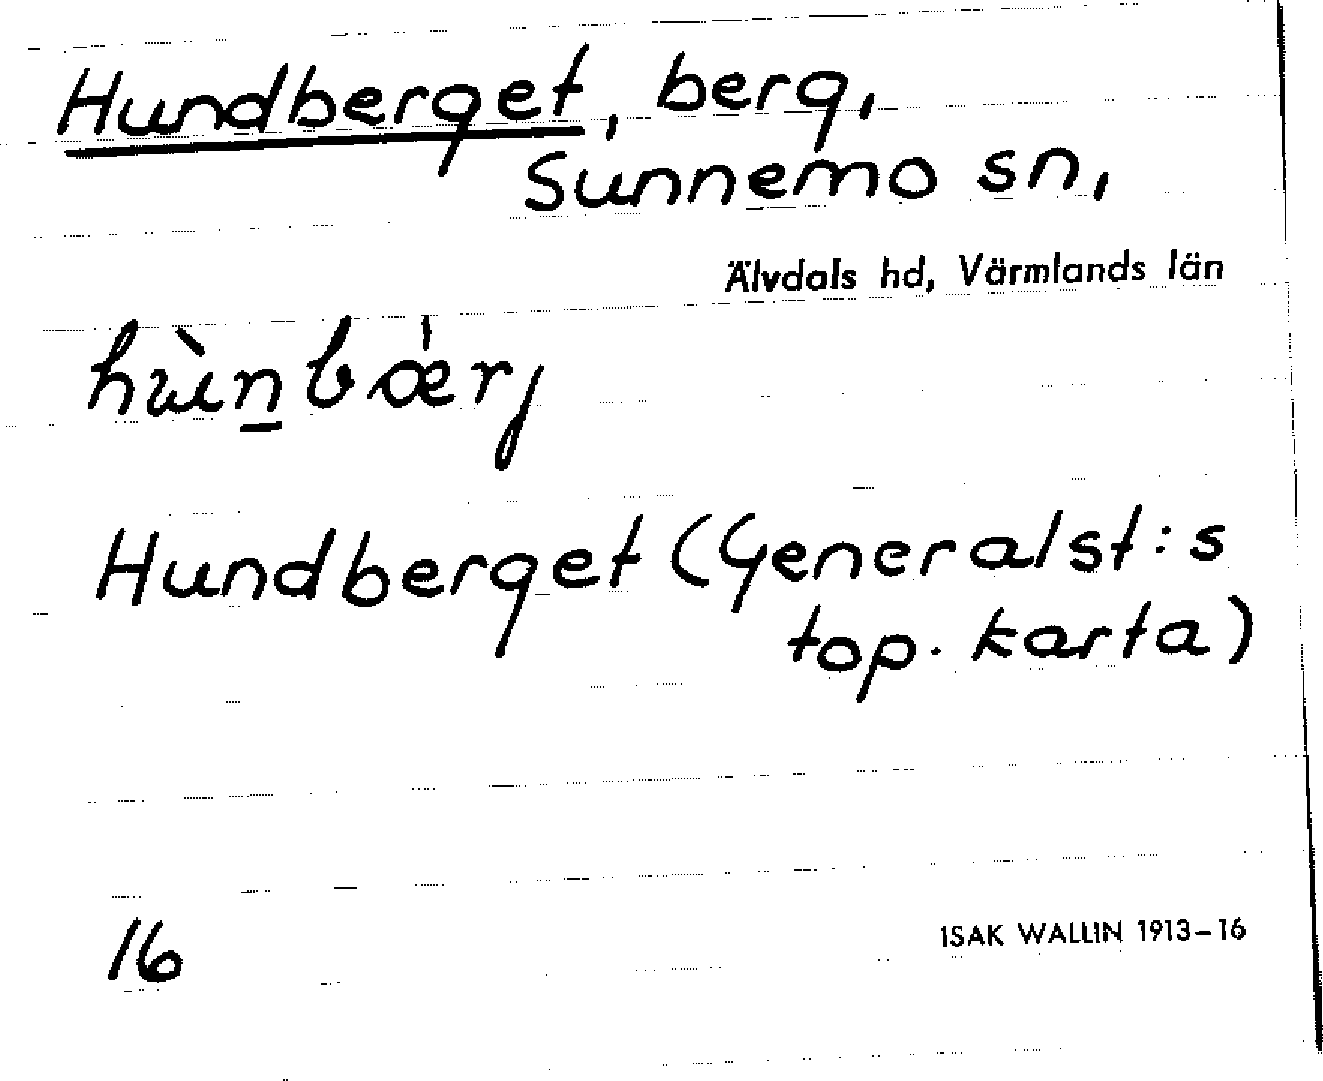 Hundberget, berg,
Sunnemo sn,
Älvdals hd, Värmlands län
hùn̲bǽrj
Hundberget (Generalst:s
top. karta)
16
ISAK WALLIN 1913-16